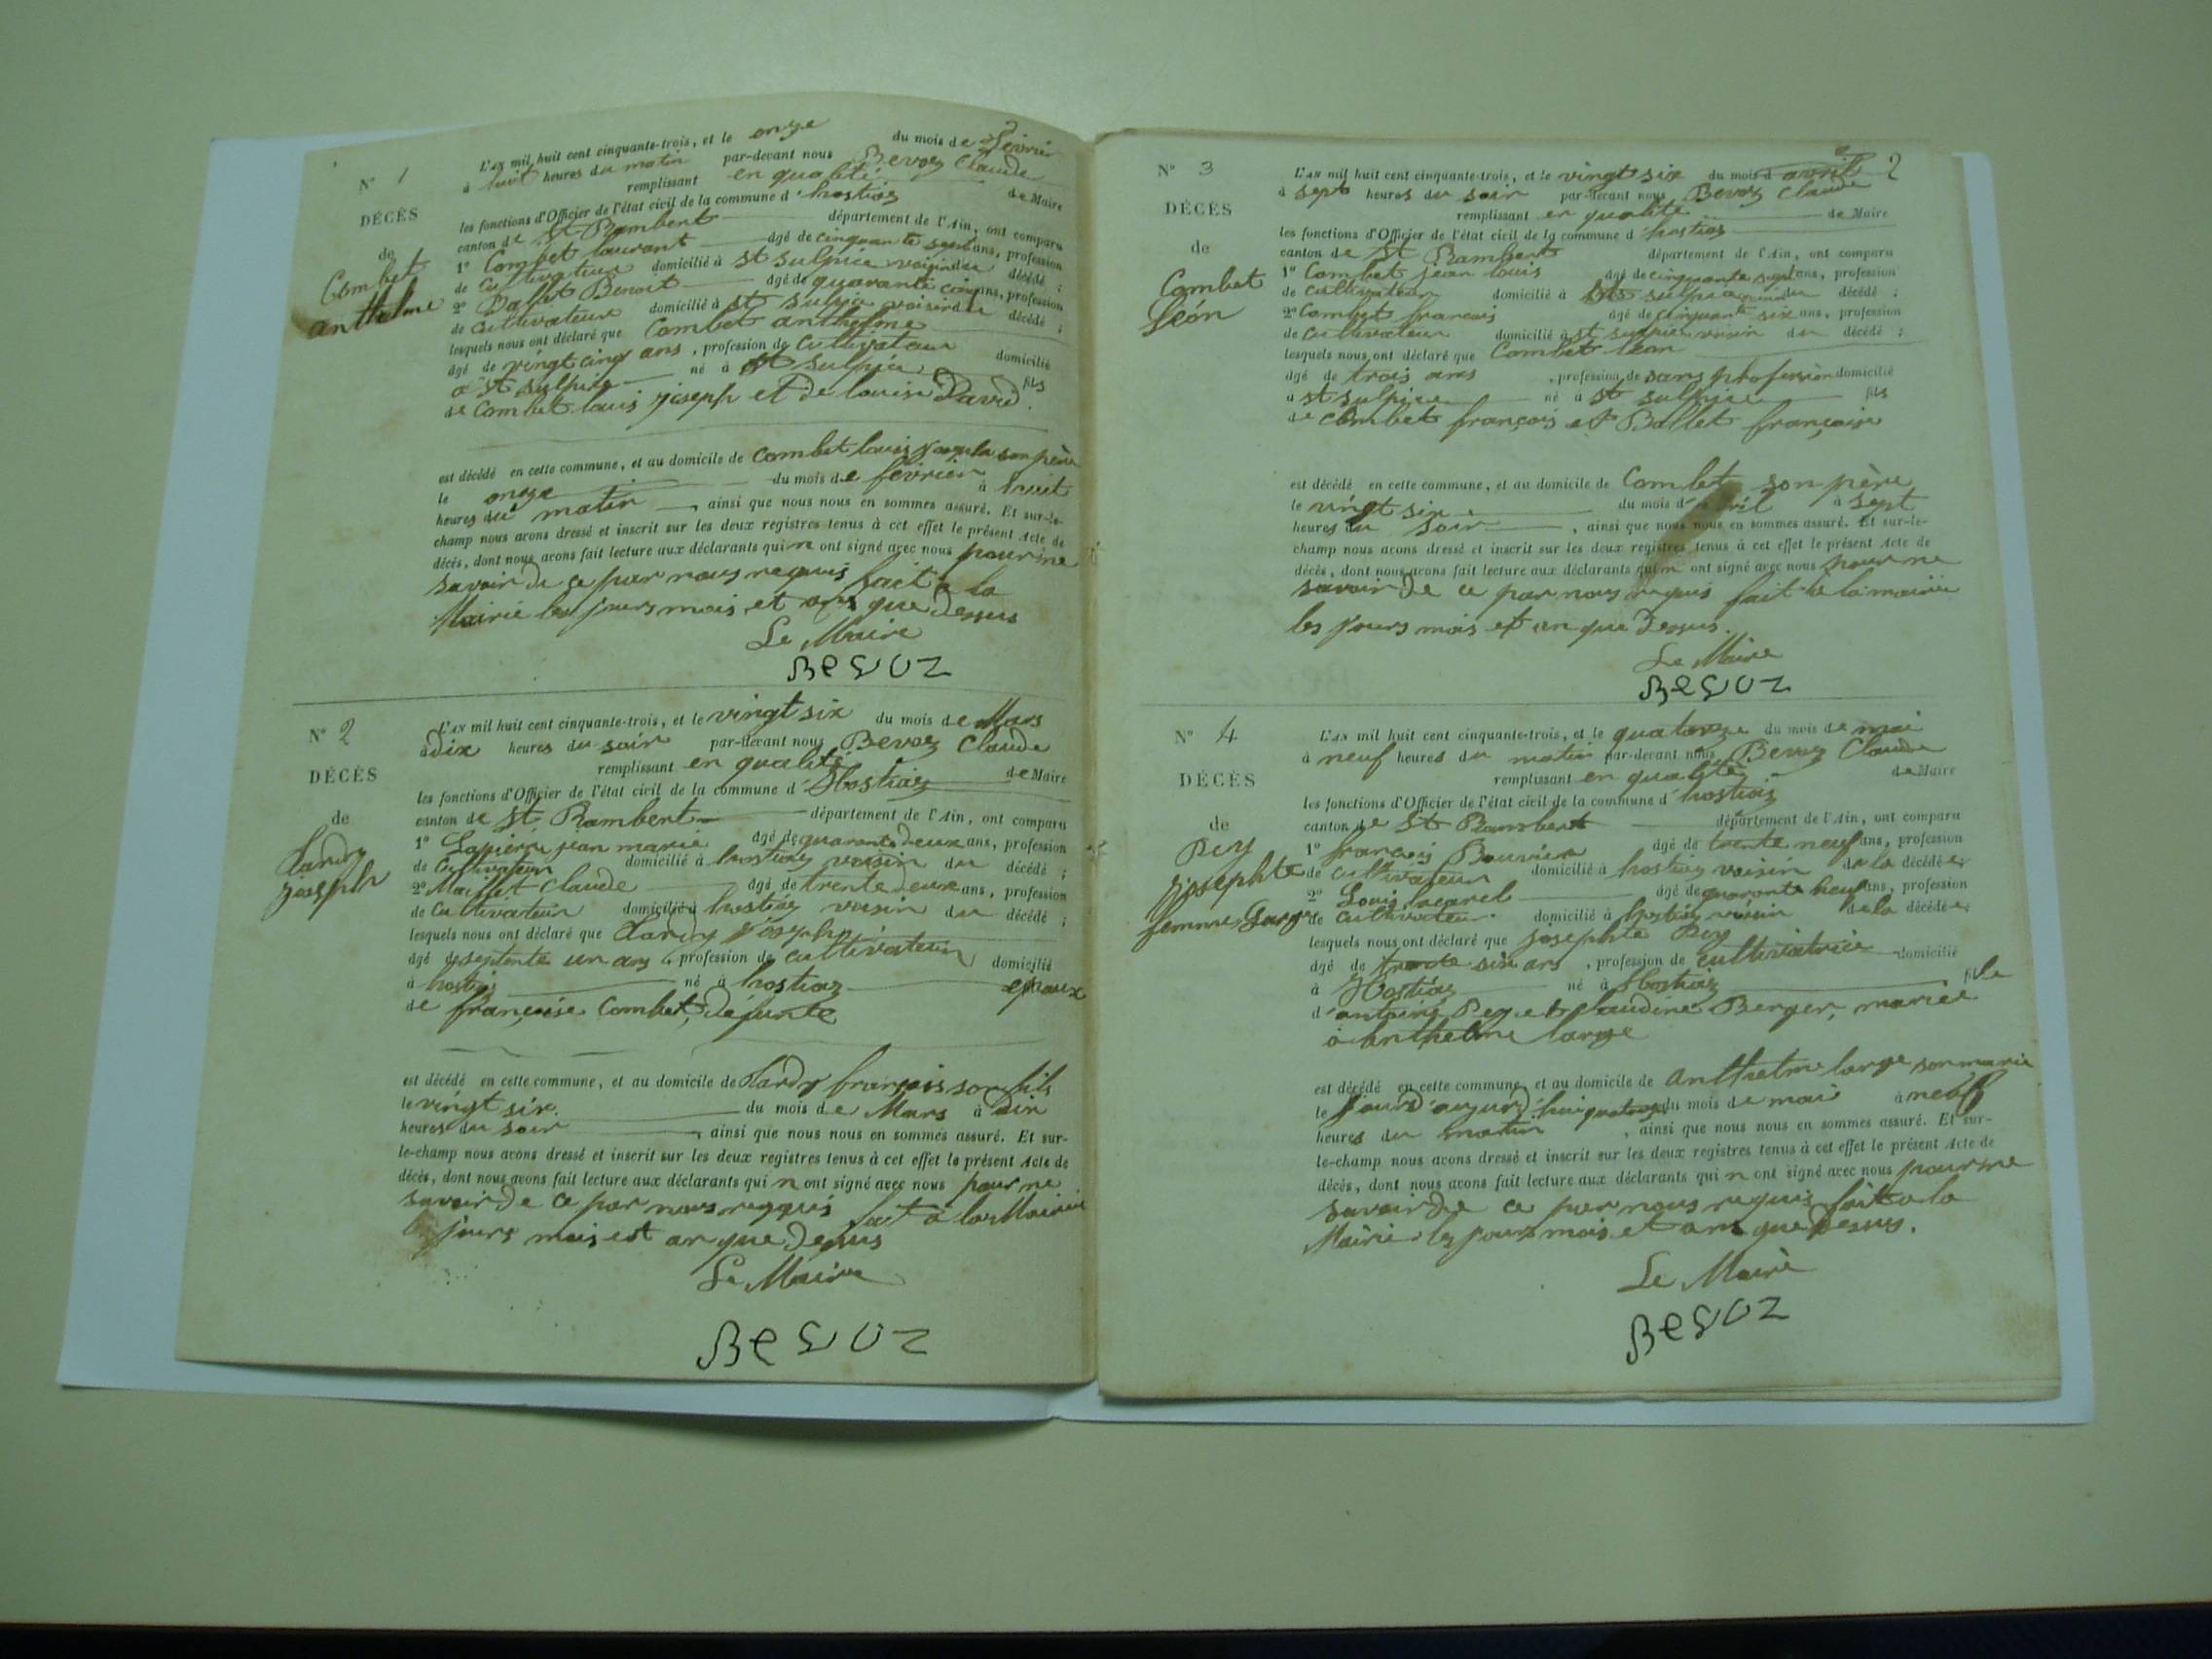 N° 1
DÉCÈS
de
Combet
anthelme
L'AN mil huit cent cinquante-trois, et le onze du mois de février
à huit heures du matin par-devant nous Bevoz Claude
remplissant en qualité de Maire
les fonctions d'Officier de l'état civil de la commune d'hostiaz
canton de St Rambert département de l'Ain, ont comparu
1° Combet laurant âgé de cinquante sept ans, profession
de Cultivateur domicilié à St Sulpice voisin du décédé ;
2° Ballet Benoit âgé de quarante cinq ans, profession
de Cultivateur domicilié à St Sulpice voisin du décédé ;
lesquels nous ont déclaré que Combet anthelme
âgé de vingt cinq ans, profession de Cultivateur domicilié
à St Sulpice né à St Sulpice fils
de Combet louis joseph et de louise David.
est décédé en cette commune, et au domicile de Combet louis joseph son père
le onze du mois de février à huit
heures du matin, ainsi que nous nous en sommes assuré. Et sur-le-
champ nous avons dressé et inscrit sur les deux registres tenus à cet effet le présent Acte de
décès, dont nous avons fait lecture aux déclarants qui n ont signé avec nous pour ne
savoir de ce par nous requis fait à la
Mairie les jours mois et ans que dessus
Le Maire
BEVOZ
N° 2
DÉCÈS
de
Tardy
joseph
L'AN mil huit cent cinquante-trois, et le vingt six du mois de Mars
à dix heures du soir par-devant nous Bevoz Claude
remplissant en qualité de Maire
les fonctions d'Officier de l'état civil de la commune d'Hostiaz
canton de St Rambert département de l'Ain, ont comparu
1° Lapierre jean marie âgé de quarante deux ans, profession
de Cultivateur domicilié à hostiaz voisin du décédé ;
2° Maillet Claude âgé de trente deux ans, profession
de Cultivateur domicilié à hostiaz voisin du décédé ;
lesquels nous ont déclaré que Tardy joseph
âgé de septente un ans, profession de cultivateur domicilié
à hostiaz né à hostiaz epoux
de françoise Combet, défunte
est décédé en cette commune, et au domicile de Tardy françois son fils
le vingt six du mois de Mars à dix
heures du soir, ainsi que nous nous en sommes assuré. Et sur-
le-champ nous avons dressé et inscrit sur les deux registres tenus à cet effet le présent Acte de
décès, dont nous avons fait lecture aux déclarants qui n ont signé avec nous pour ne
savoir de ce par nous requis fait à la Mairie
les jours mois et an que dessus
Le Maire
BEVOZ
2
N° 3
DÉCÈS
de
Combet
Léon
L'AN mil huit cent cinquante-trois, et le vingt six du mois d avril
à sept heures du soir par-devant nous Bevoz Claude
remplissant en qualité de Maire
les fonctions d'Officier de l'état civil de la commune d'hostiaz
canton de St Rambert département de l'Ain, ont comparu
1° Combet jean louis âgé de cinquante sept ans, profession
de Cultivateur domicilié à St sulpice du décédé ;
2° Combet francois âgé de cinquante six ans, profession
de Cultivateur domicilié à st sulpice voisin du décédé ;
lesquels nous ont déclaré que Combet léon
âgé de trois ans, profession de sans profession domicilié
à st sulpice né à st sulpice fils
de Combet françois et Ballet françoise
est décédé en cette commune, et au domicile de Combet son père
le vingt six du mois d'avril à sept
heures du soir, ainsi que nous nous en sommes assuré. Et sur-le-
champ nous avons dressé et inscrit sur les deux registres tenus à cet effet le présent Acte de
décès, dont nous avons fait lecture aux déclarants qui n ont signé avec nous pour ne
savoir de ce par nous requis fait à la mairie
les jours mois et an que dessus.
Le Maire
BEVOZ
N° 4
DÉCÈS
de
Pey
josephte
femme Large
L'AN mil huit cent cinquante-trois, et le quatorze du mois de mai
à neuf heures du matin par-devant nous Bevoz Claude
remplissant en qualité de Maire
les fonctions d'Officier de l'état civil de la commune d'hostiaz
canton de St Rambert département de l'Ain, ont comparu
1° françois Bouvier âgé de trente neuf ans, profession
de Cultivateur domicilié à hostiaz voisin de la décédée
2° Louis âgé de quarante neuf ans, profession
de Cultivateur domicilié à hostiaz voisin de la décédée
lesquels nous ont déclaré que josephte Pey
âgé de trente six ans, profession de cultivatrice domicilié
à Hostiaz né à Hostiaz fille
d'antoine Pey et claudine Berger, mariée
à anthelme large
est décédé en cette commune, et au domicile de anthelme large son mari
le jourd'aujurd'hui quatorze du mois de mai à neuf
heures du matin, ainsi que nous nous en sommes assuré. Et sur-
le-champ nous avons dressé et inscrit sur les deux registres tenus à cet effet le présent Acte de
décès, dont nous avons fait lecture aux déclarants qui n ont signé avec nous pour ne
savoir de ce par nous requis fait à la
Mairie les jours mois et ans que dessus.
Le Maire
BEVOZ